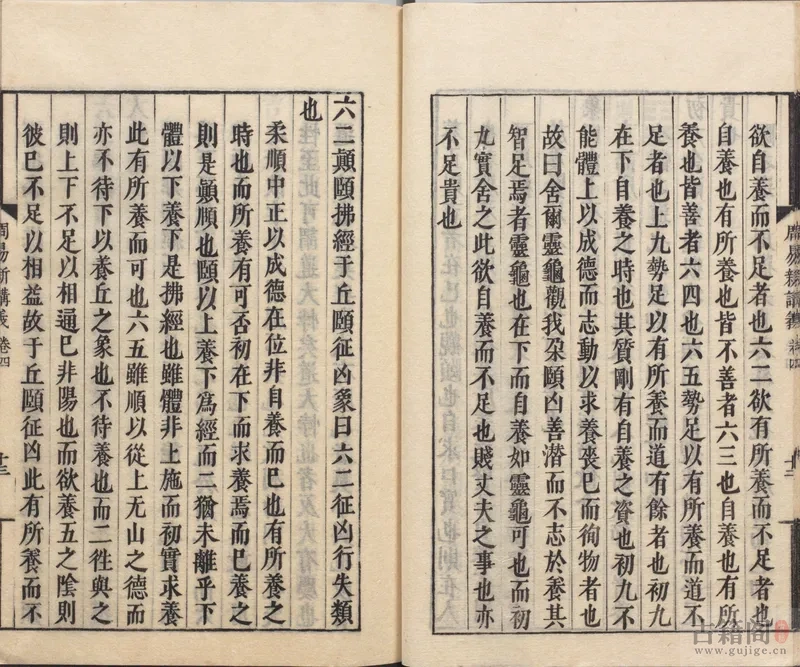 欲自養而不足者也六二欲有所養而不足者也
自養也有所養也皆不善者六三也自養也有所
養也皆善者六四也六五勢足以有所養而道不
足者也上九勢足以有所養而道有餘者也初九
在下自養之時也其質剛有自養之資也初九不
能體上以成德而志動以求養喪已而徇物者也
故曰舍爾靈龜觀我朶頤凶善潜而不志於養其
智足焉者靈龜也在下而自養如靈龜可也而初
九實舍之此欲自養而不足也賤丈夫之事也亦
不足貴也
周易新講義 卷四
十二
六二顛頤拂經于丘頤征凶象曰六二征凶行失類
也
柔順中正以成德在位非自養而巳也有所養之
時也而所養有可否初在下而求養焉而巳養之
則是顛順也頤以上養下爲經而二猶未離乎下
體以下養下是拂經也雖體非上施而初實求養
此有所養而可也六五雖順以從上无山之德而
亦不待下以養丘之象也不待養也而二徃與之
則上下不足以相通巳非陽也而欲養五之陰則
彼巳不足以相益故于丘頤征凶此有所養而不
周易新講義 卷四
十三
古籍阁
www.gujige.cn